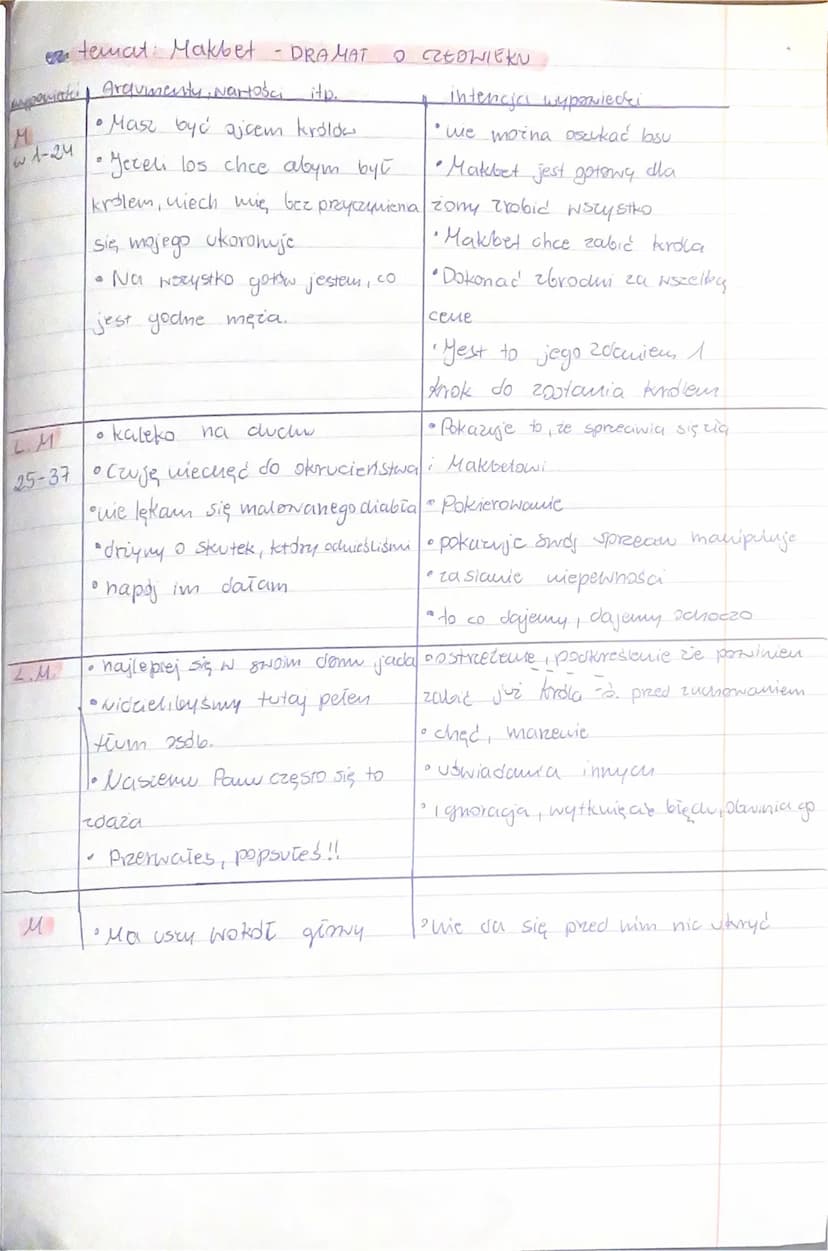 temat: Makbet - DRAMAT O CZŁOWIEKU
wypowiedzi Argumenty, wartości itp. intencja wypowiedzi
M
w 1-24
• Masz być ojcem królów
• Jeżeli los chce abym był
królem, niech mię bez przyczynienia
się mojego ukoronuje
• Na wszystko gotów jestem, co
jest godne męża.
• nie można oszukać losu
• Makbet jest gotowy dla
żony zrobić wszystko
• Makbet chce zabić króla
• Dokonać zbrodni za wszelką
cene
• Jest to jego zdaniem 1
krok do zostania królem
L.M
25-37
• kaleko na duchu
• Czuję niechęć do okrucieństwa
• nie lękam się malowanego diabła
• drżymy o skutek, który odnieśliśmi
• napój im dałam
• Pokazuje to, że sprzeciwia się
i Makbetowi
• Pokierowanie
• pokazując swój sprzeciw manipuluje
• zasianie niepewności
• to co dajemy, dajemy ochoczo
L.M.
• najlepiej się w swoim domu jada
• widzielibyśmy tutaj pełen
tłum osób.
• Naszemu Panu często się to
zdaża
• Przerwałeś, popsułeś!!
• ostrzeżenie, podkreślenie że powinien
zabić już króla - przed zachowaniem
• chęć, marzenie
• uświadamia innych
• Ignoracja, wytknięcie błędu, obwinia go
M
• Ma uszy wokół głowy
• nie da się przed nim nic ukryć